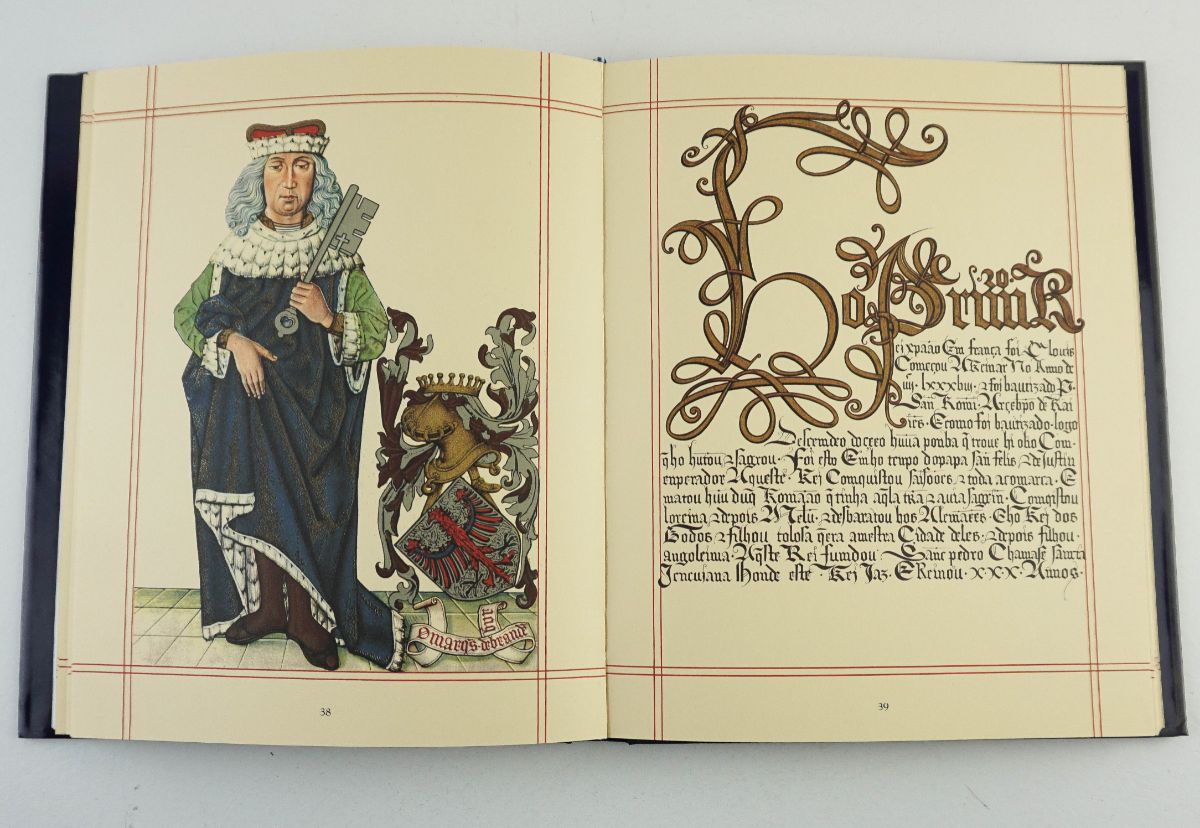 Omarqs·debrande
bor
38
o Primr̃o
Rei xpaão Em frança foi Clouis
Começou A Reinar No Anno de
iiij· lxxxbiij· & foi bautizado p̃
San Romi Arcebp̃o de Rai
Ecomo foi bautizado· logo
Descemdeo doçeo huũa pomba q̃ trouve hũ olio Com
q̃ho hutou & sagrou· Foi esto Em ho tenpo dopapa san felis & de Justin
enperador Aqueste· Rei Comquistou saisões & toda acomarca· E
matou hũu duq̃ Romaão q̃ tinha aq̃la t̃ra & auia sagrin· Comqistou
loreina & depois Melũ· & desbaratou hos Alemães· Eho Rei dos
Godos & filhou tolosa q̃era amestra Cidade deles· & depois filhou·
angoleima· Aq̃ste Rei fumdou Sanc pedro Chamase samta
Jeneuiana Honde este· Rei Jaz· E Reinou·xxx· Annos·
39